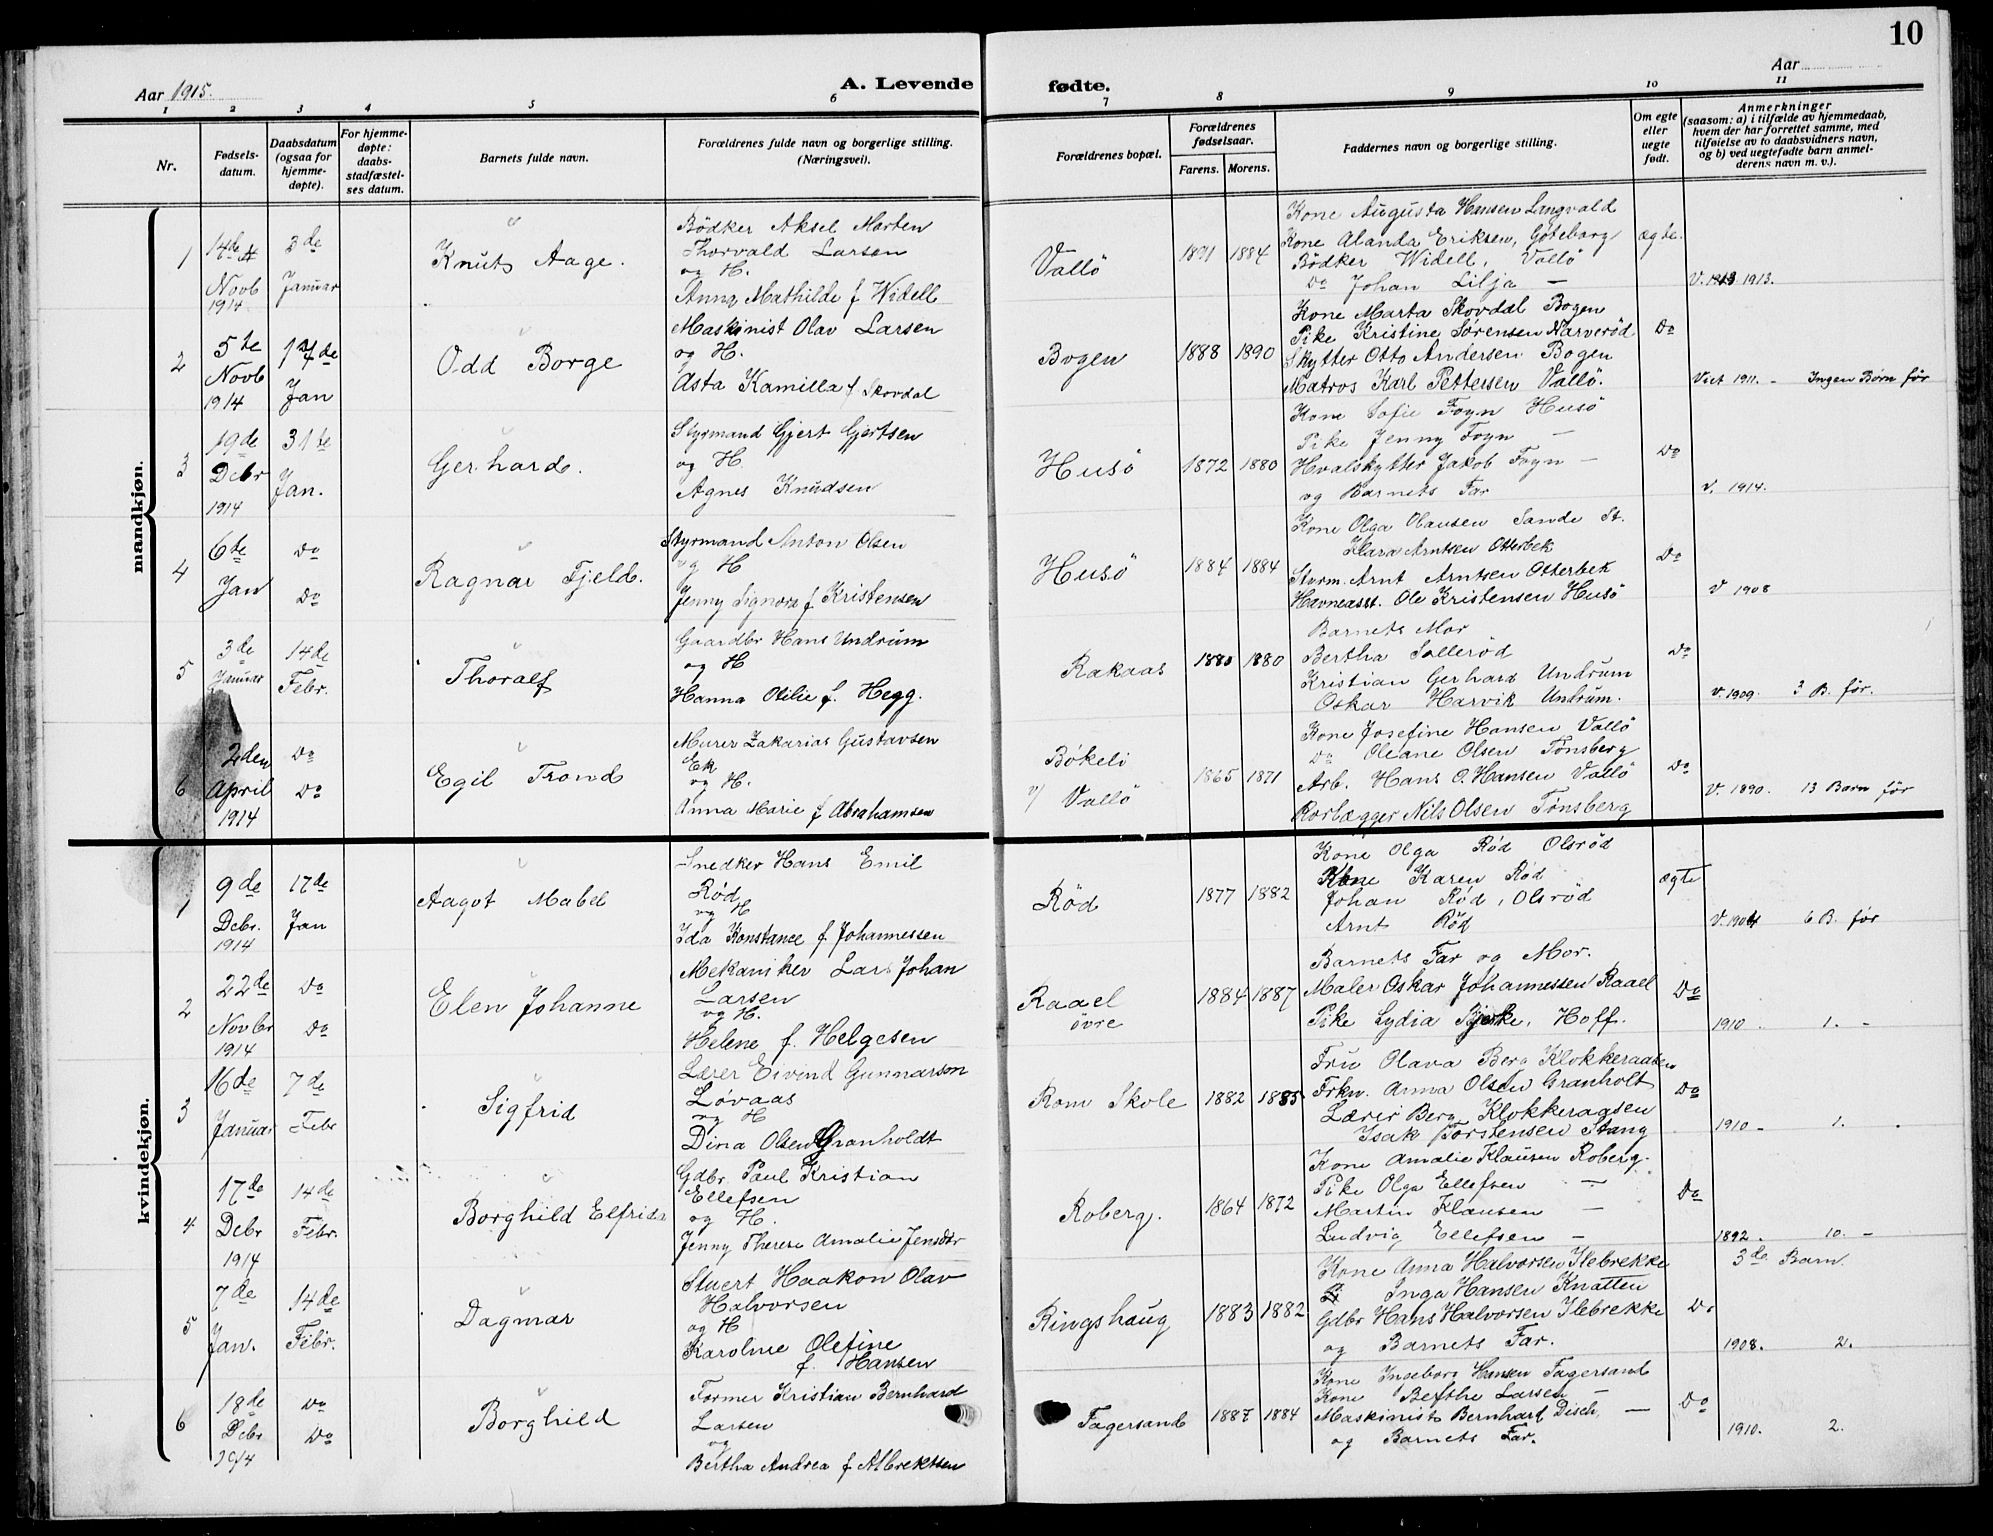 10
Aar 1915.
A. Levende fødte.
Aar
1 2 3 4 5 6 7 8 9 10 11
Nr.
Fødsels-
datum.
Daabsdatum
(ogsaa for
hjemme-
døpte).
For hjemme-
døpte:
daabs-
stadfæstel-
ses datum.
Barnets fulde navn.
Forældrenes fulde navn og borgerlige stilling.
(Næringsvei).
Forældrenes bopæl.
Forældrenes
fødselsaar.
Farens. Morens.
Faddernes navn og borgerlige stilling.
Om egte
eller
uegte
født.
Anmerkninger
(saasom: a) i tilfælde av hjemmedaab,
hvem der har forrettet samme, med
tilføielse av to daabsvidners navn,
og b) ved uegtefødte barn anmel-
derens navn m. v.).
mandkjøn.
1
14de
Novb
1914
3de
Januar
Knut Aage.
Bödker Aksel Morten
Thorvald Larsen
og H.
Anna Mathilde f Widell
Vallö
1891 1884
Kone Augusta Hansen Langvald
Kone Alanda Eriksen, Göteborg
Bödker Widell, Vallö
Do Johan Lilja —
ægte.
V. 1913.
2
5te
Novb
1914
17de
Jan
Odd Borge
Maskinist Olav Larsen
og H.
Asta Kamilla f Skovdal
Bogen
1888 1890
Kone Marta Skovdal Bogen
Pike Kristine Sørensen Narverød
Skytter Otto Andersen Bogen
Matros Karl Pettersen Vallö.
Do
Viet 1911. - Ingen Børn før
3
19de
Debr
1914
31te
Jan.
Gerhard.
Styrmand Gjert Gjertsen
og H.
Agnes Knudsen
Husö
1872 1880
Kone Sofie Foyn Husö
Pike Jenny Foyn —
Hvalskytter Jakob Foyn —
og Barnets Far
Do
V. 1914.
4
6te
Jan
Do
Do
Ragnar Fjeld.
Styrmand Anton Olsen
og H
Jenny Signora f Kristensen
Husö
1884 1884
Kone Olga Olausen Sande St.
Klara Arntsen Otterbek
Styrm. Arnt Arntsen Otterbek
Havneasst. Ole Kristensen Husö
Do
V 1908
5
3de
Januar
14de
Febr.
Thoralf
Gaardbr Hans Undrum
og H
Hanna Otilie f. Hegg.
Rakaas
1880 1880
Barnets Mor
Bertha Sollerød
Kristian Gerhard Undrum
Oskar Harvik Undrum.
Do
V. 1909. 3 B. før.
6
2den
April
1914
Do
Do
Egil Trond
Murer Zakarias Gustavsen
Ek
og H.
Anna Marie f Abrahamsen
Bökeli
v/ Vallö
1865 1871
Kone Josefine Hansen Vallö
Do Oleane Olsen Tønsberg
Arb. Hans O. Hansen Vallö
Rorlægger Nils Olsen Tønsberg
Do
V. 1890. 13 Barn før
kvindekjøn.
1
9de
Debr.
1914
17de
Jan
Aagot Mabel
Snedker Hans Emil
Rød
og H
Ida Konstance f. Johannessen
Rød
1877 1882
Kone Olga Rød Olsrød
Kone Karen Rød
Johan Rød, Olsrød
Arnt Rød
ægte
V. 1904 6 B. før
2
22de
Novbr
1914
Do
Do
Elen Johanne
Mekaniker Lars Johan
Larsen
og H.
Helene f. Helgesen
Raael
övre
1884 1887
Barnets Far og Mor.
Maler Oskar Johannessen Raael
Pike Lydia Bjerke, Hoff.
Do
1910 . 1. -
3
16de
Januar
7de
Febr
Sigfrid
Lærer Eivind Gunnarson
Løvaas
og H
Dina Olsen Granholdt
Rom Skole
1882 1885
Fru Olava Berg Klokkeraasen
Frkn. Anna Olsen Granholt
Lærer Berg Klokkeraasen
Isak Torstensen Stang
Do
1910 - 1.
4
17de
Debr
1914
14de
Febr.
Borghild Elfrida
Gdbr. Paul Kristian
Ellefsen
og H.
Jenny Therese Amalie Jensdtr
Roberg.
1864 1872
Kone Amalie Klausen Roberg.
Pike Olga Ellefsen —
Martin Klausen —
Ludvig Ellefsen —
Do
1892. 10. -
5
7de
Jan.
14de
Febr.
Dagmar
Stuert Haakon Olav
Halvorsen
og H
Karoline Olefine
f. Hansen
Ringshaug
1883 1882
Kone Anna Halvorsen Ilebrekke
Inga Hansen Knatten
Gdbr Hans Halvorsen Ilebrekke
og Barnets Far.
Do
3de Barn
1908. 2.
6
18de
Debr
1914
Do
Do
Borghild
Former Kristian Bernhard
Larsen
og
Bertha Andrea f Albrektsen
Fagersand
1887 1884
Kone Ingeborg Hansen Fagersand
Kone Berthe Larsen —
Maskinist Bernhard Disch, —
og Barnets Far.
Do
1910. 2.